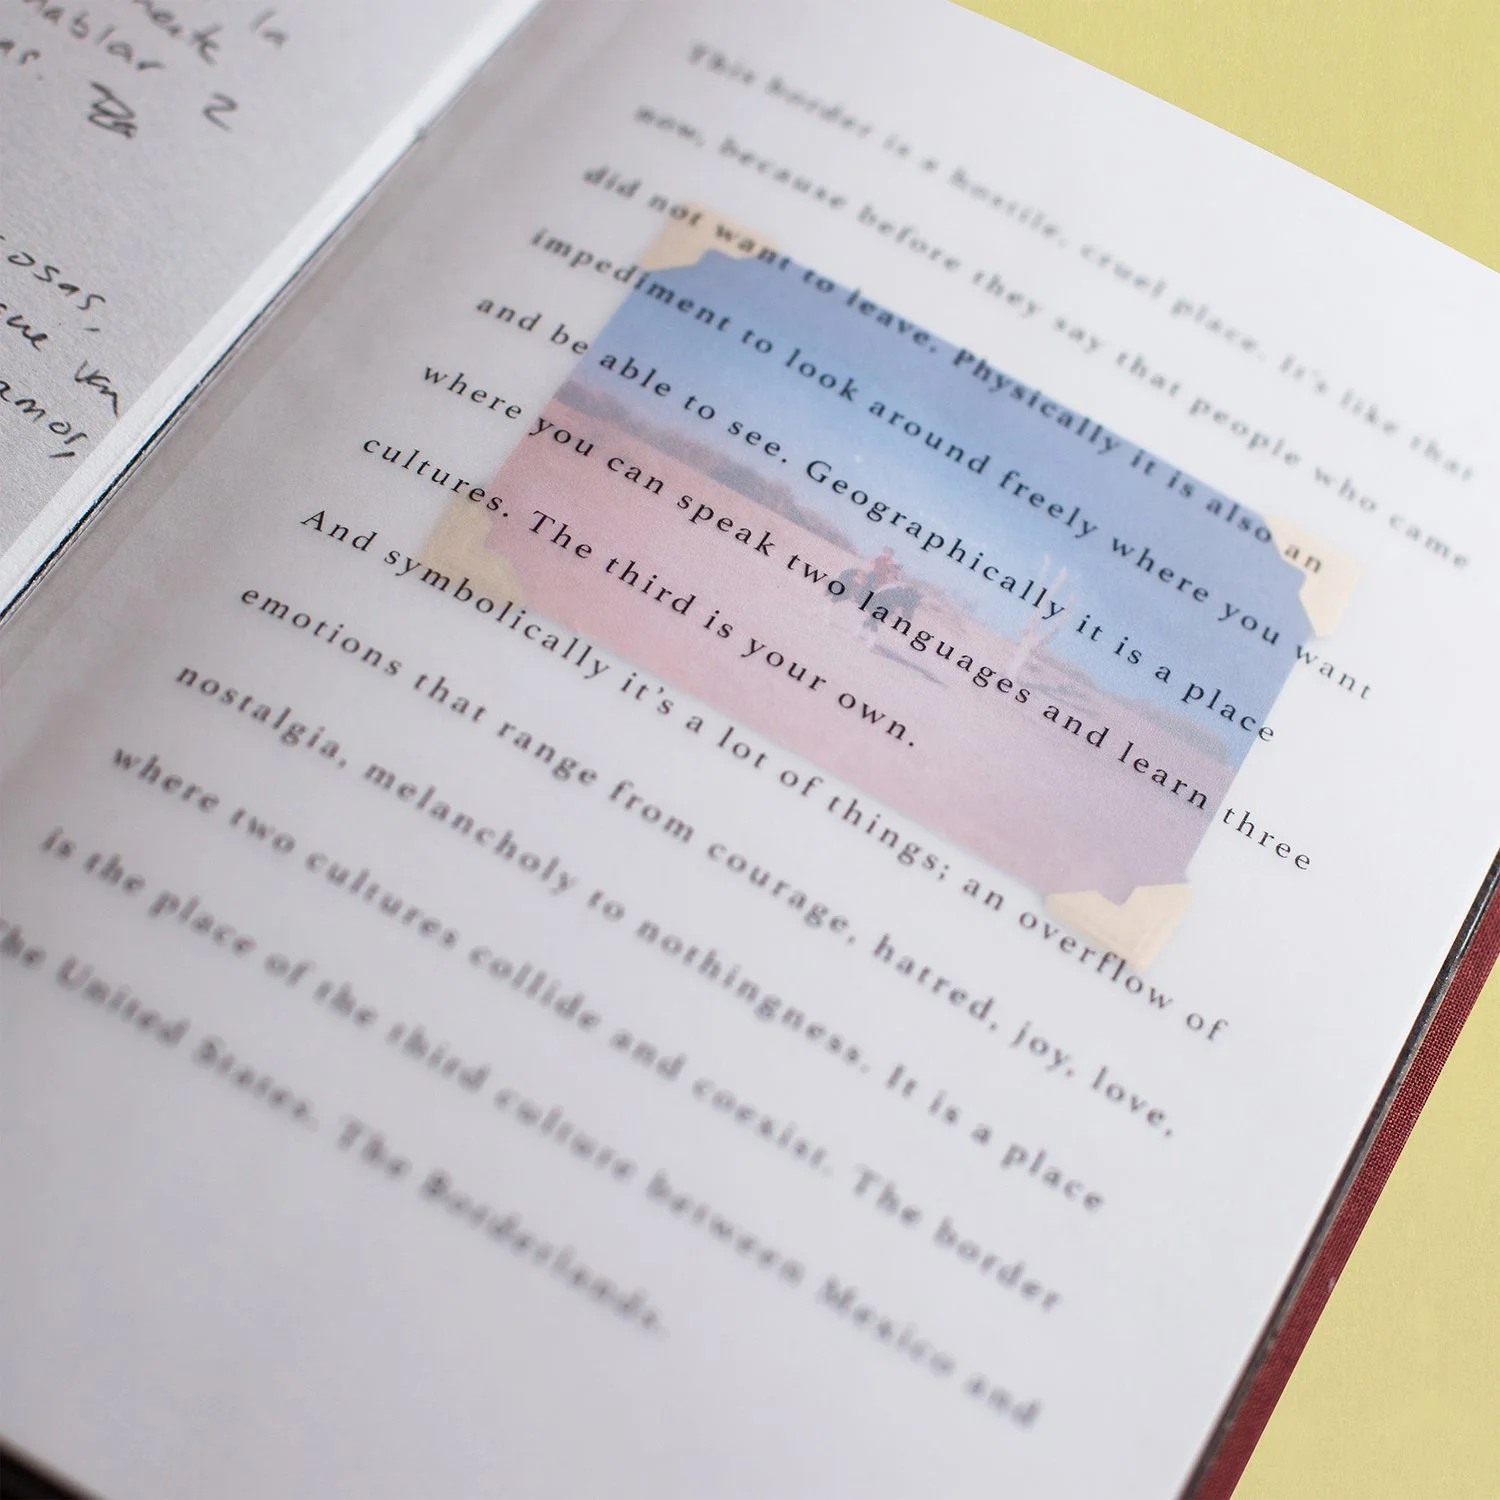 la
mente
hablar 2
as.
cosas,
que van
amos,
This border is a hostile, cruel place. It's like that
now, because before they say that people who came
did not want to leave. Physically it is also an
impediment to look around freely where you want
and be able to see. Geographically it is a place
where you can speak two languages and learn three
cultures. The third is your own.
And symbolically it's a lot of things; an overflow of
emotions that range from courage, hatred, joy, love,
nostalgia, melancholy to nothingness. It is a place
where two cultures collide and coexist. The border
is the place of the third culture between Mexico and
the United States. The Borderlands.